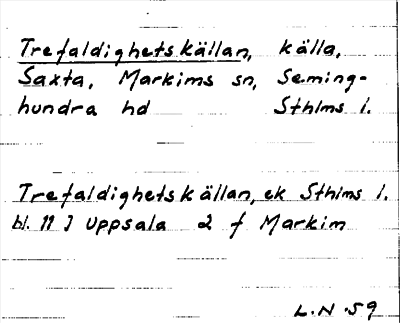 Trefaldighetskällan, källa,
Saxta, Markims sn, Seming-
hundra hd Sthlms l.
Trefaldighetskällan, ek Sthlms l.
bl. 11 J Uppsala 2 f Markim
L.N. 59